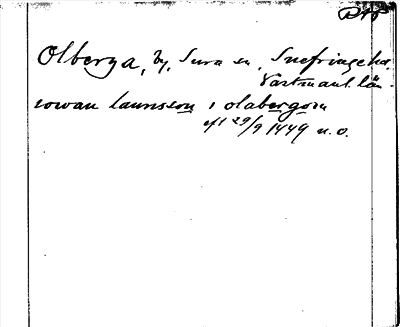 Olberga, by, Sura sn, Snefringe hd.
Västmanl. län.
iowan laurisson i olabergom
eft 29/9 1449 n. o.